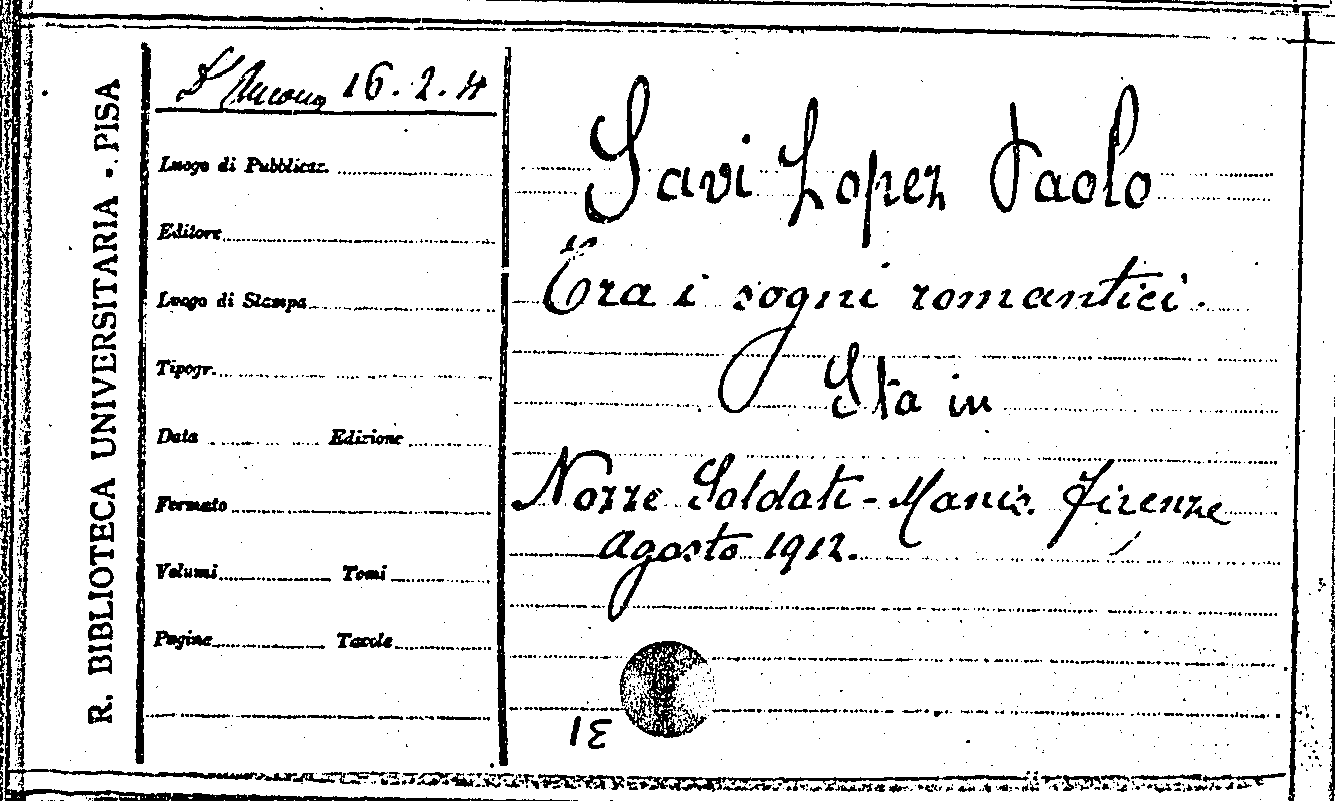 R. BIBLIOTECA UNIVERSITARIA - PISA
D'Ancona 16. 2. 4
Luogo di Pubblicaz.
Editore
Luogo di Stampa
Tipogr.
Data Edizione
Formato
Volumi Tomi
Pagine Tavole
Savi Lopez Paolo
Tra i sogni romantici.
Sta in
Nozze Soldati-Manis. Firenze
agosto 1912.